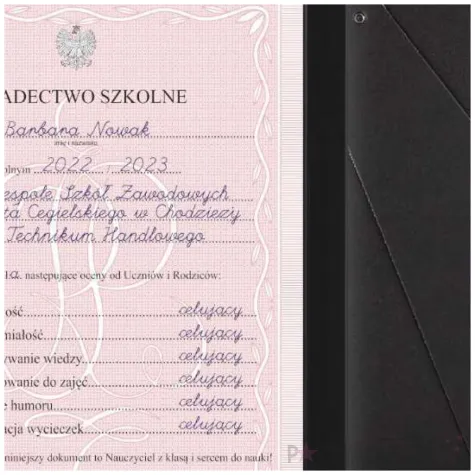 ADECTWO SZKOLNE
Barbara Nowak
imię i nazwisko
olnym 2022 / 2023
espole Szkół Zawodowych
za Cegielskiego w Chodzieży
Technikum Handlowego
ła następujące oceny od Uczniów i Rodziców:
ość celujący
miałość celujący
ywanie wiedzy celujący
owanie do zajęć celujący
e humoru celujący
cja wycieczek celujący
niniejszy dokument to Nauczyciel z klasą i sercem do nauki!
P